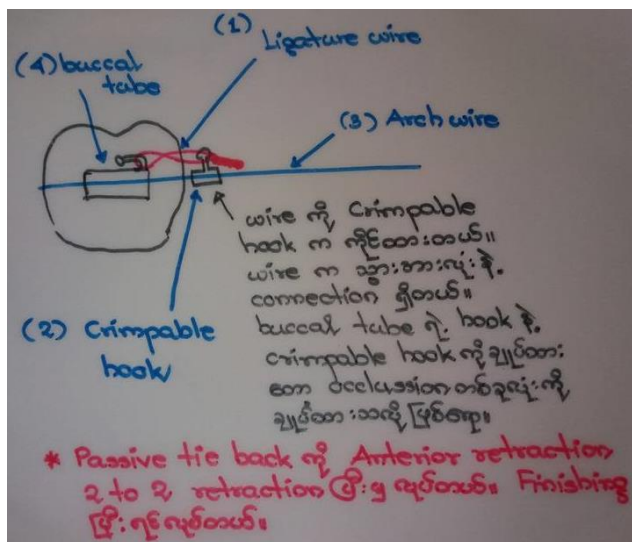 (1)
Ligature wire
(4) buccal
tube
(3) Arch wire
wire ကို Crimpable
hook က ကိုင်ထားတယ်။
wire က သွားအားလုံးနဲ့
connection ရှိတယ်။
buccal tube ရဲ့ hook နဲ့
crimpable hook ကို ချုပ်ထား
တော့ occlussion တစ်ခုလုံးကို
ချုပ်ထားသလို ဖြစ်ရော။
(2) Crimpable
hook
* Passive tie back ကို Anterior retraction
2 to 2 retraction ပြီး၅ လုပ်တယ်။ Finishing
ပြီးရင်လုပ်တယ်။